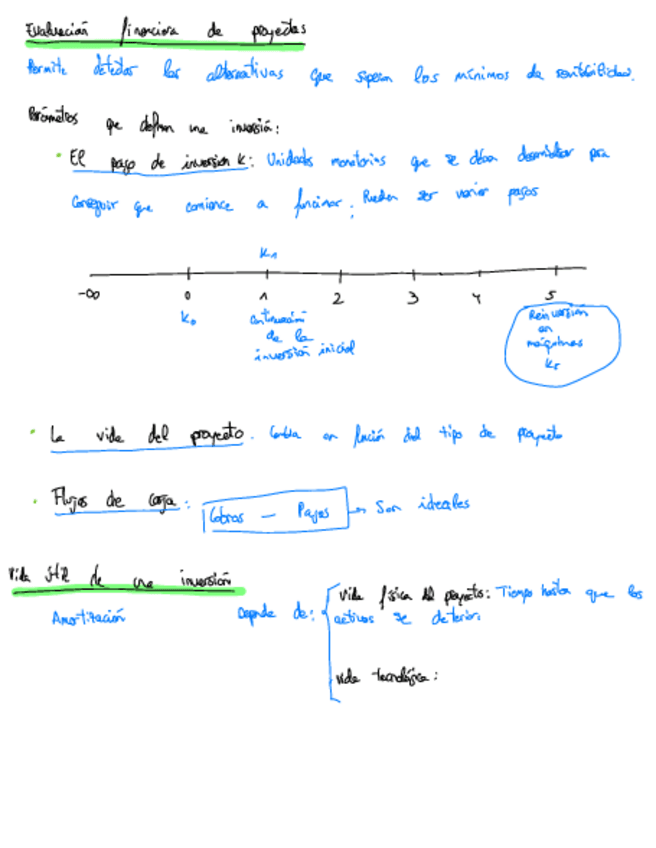 Evaluación financiera de proyectos
Permite detectar las alternativas que superan los mínimos de rentabilidad.
Parámetros que definen una inversión:
• El pago de inversion K: Unidades monetarias que se deben desembolsar para
conseguir que comience a funcionar. Pueden ser varios pagos
K1
-∞ 0 1 2 3 4 5
K0
continuación
de la
inversión inicial
Reinversion
en
máquinas
K5
• La vida del proyecto. Cambia en función del tipo de proyecto
• Flujos de caja: Cobros — Pagos → Son ideales
Vida útil de una inversión
Amortización
Depende de:
vida física del proyecto: Tiempo hasta que los
activos se deterior.
vida tecnológica: